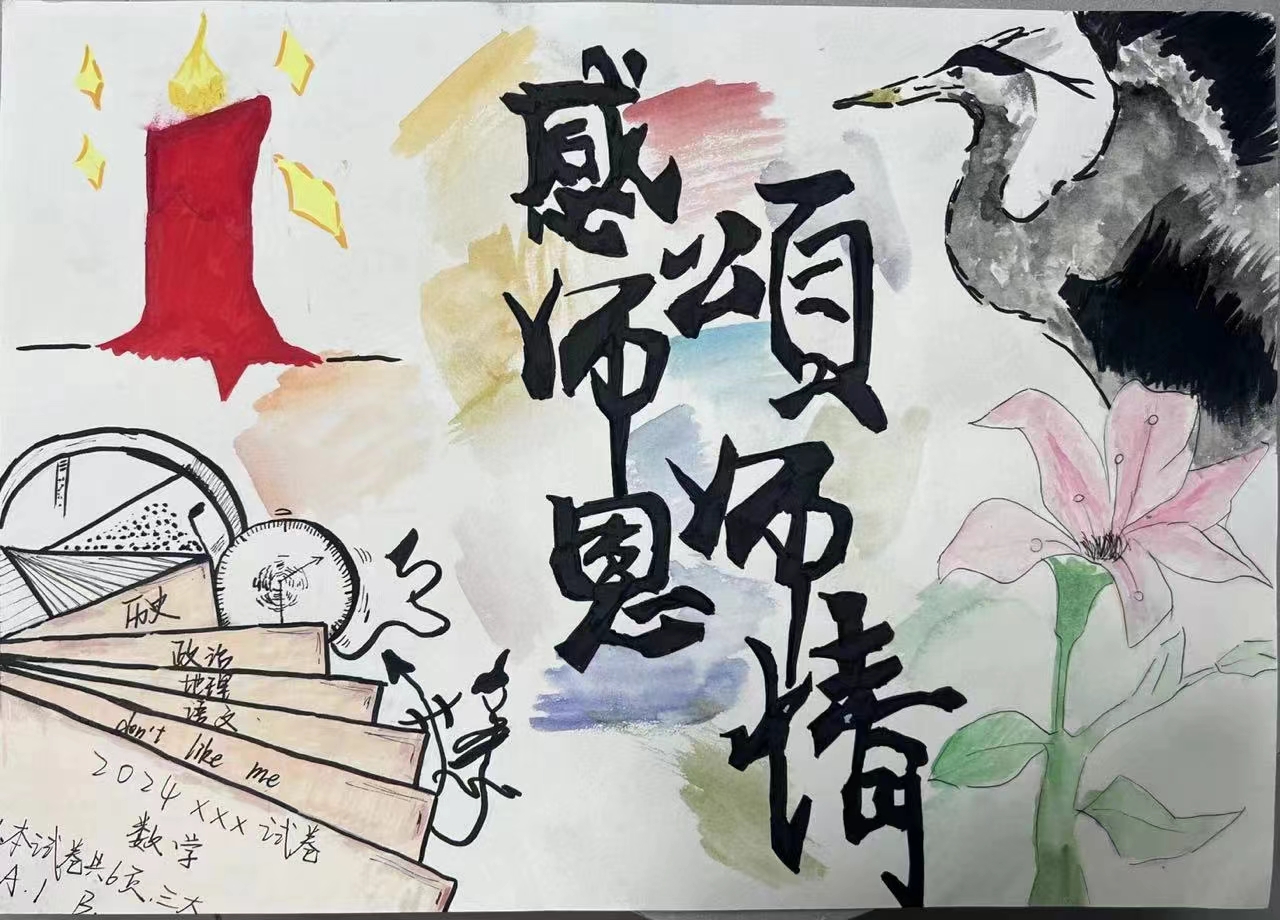 感师恩
頌师情
历史
政治
地理
语文
don't like me
2024 xxx 试卷
数学
本试卷共6页.三大
A.1 B.